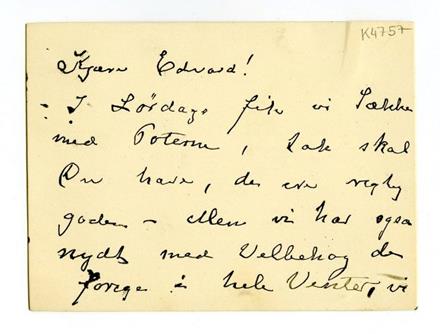 K4757
Kjære Edvard!
- I Lördags fik vi Sække
med Poterne, tak skal
Du have, de ere rigtig
gode. - Men vi har ogsa
nydt med Velbehag de
forrige i hele Vinter, vi